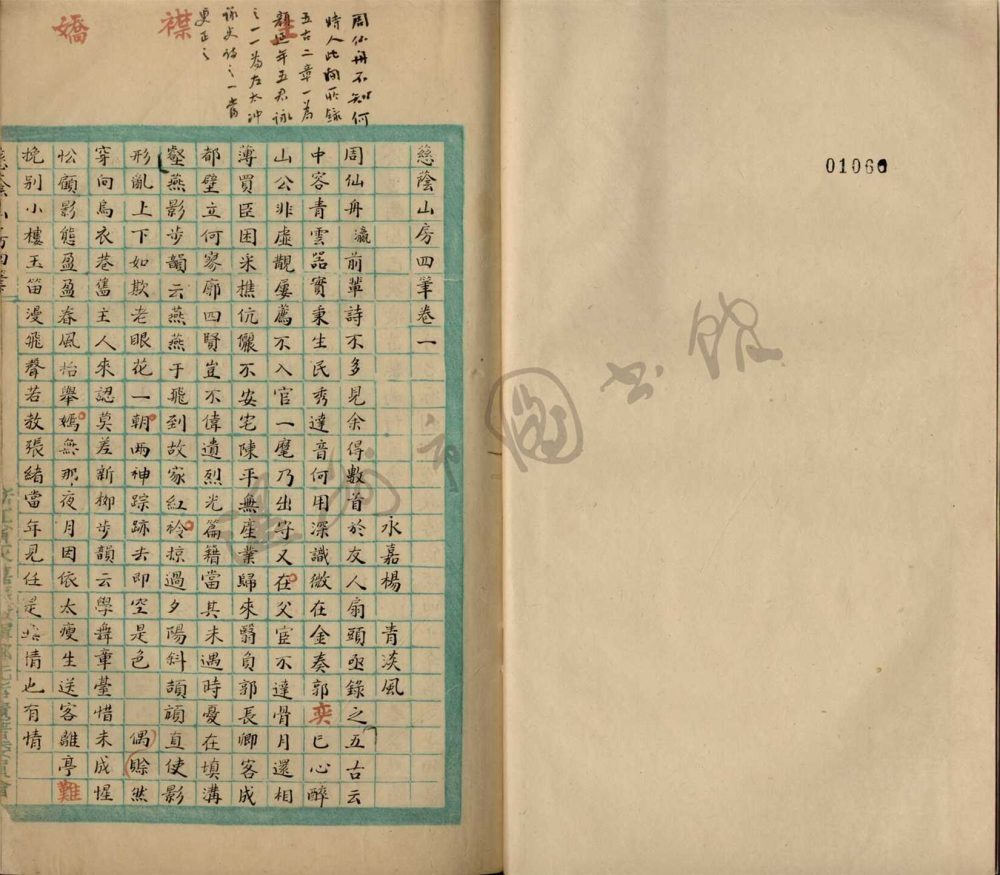 01060
周仙舟不知何
時人此間所錄
五古二章一為
顏延年五君詠
之一一為左太沖
詠史詩之一當
更正之
襟
嬌
慈蔭山房四筆卷一
永嘉楊 青淡風
周仙舟瀛前輩詩不多見余得數首於友人扇頭亟錄之五古云
中容青雲器實秉生民秀達音何用深識微在金奏郭奕已心醉
山公非虛覯屢薦不入官一麾乃出守又在父宦不達骨月還相
薄買臣困采樵伉儷不安宅陳平無產業歸來翳負郭長卿客成
都壁立何寥廓四賢豈不偉遺烈光篇籍當其未遇時憂在填溝
壑燕影步韻云燕燕于飛到故家紅衿掠過夕陽斜頡頏直使影
形亂上下如欺老眼花一朝兩神踪跡去即空是色 偶賒然
穿向烏衣巷舊主人來認莫差新柳步韻云學舞章臺惜未成惺
忪顧影態盈盈春風抬舉嫣無那夜月因依太瘦生送客離亭難
挽別小樓玉笛漫飛聲若教張緒當年見任是無情也有情